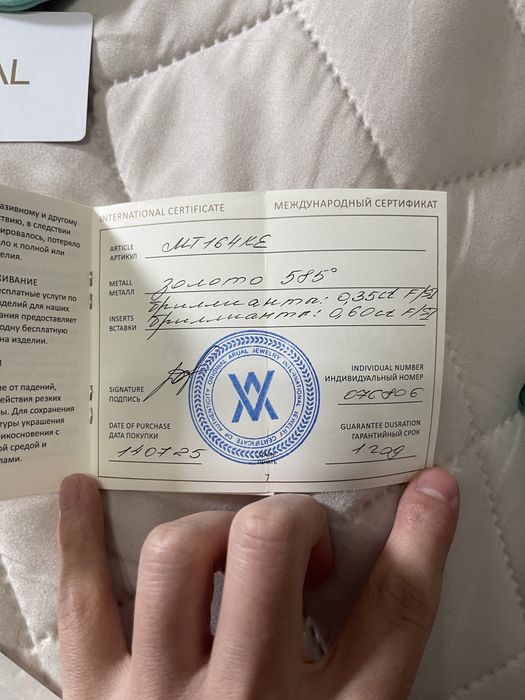 AL
азивному и другому
ствию, в следствии
ировалось, потеряло
ло к полной или
елия.
ЖИВАНИЕ
есплатные услуги по
делий для наших
ания предоставляет
одну бесплатную
на изделии.
ие от падений,
действия резких
ы. Для сохранения
туры украшения
рикосновения с
ой средой и
лами.
INTERNATIONAL CERTIFICATE
МЕЖДУНАРОДНЫЙ СЕРТИФИКАТ
ARTICLE
АРТИКУЛ
МТ164КЕ
METALL
МЕТАЛЛ
Золото 585°
INSERTS
ВСТАВКИ
бриллианты: 0,35ct F/SI
бриллианты: 0,60ct F/SI
SIGNATURE
ПОДПИСЬ
ORIGINAL ARUAL JEWELRY INTERNATIONAL
CERTIFICATE OF AUTHENTICITY
INDIVIDUAL NUMBER
ИНДИВИДУАЛЬНЫЙ НОМЕР
076806
DATE OF PURCHASE
ДАТА ПОКУПКИ
140725
GUARANTEE DUSRATION
ГАРАНТИЙНЫЙ СРОК
1 год
7